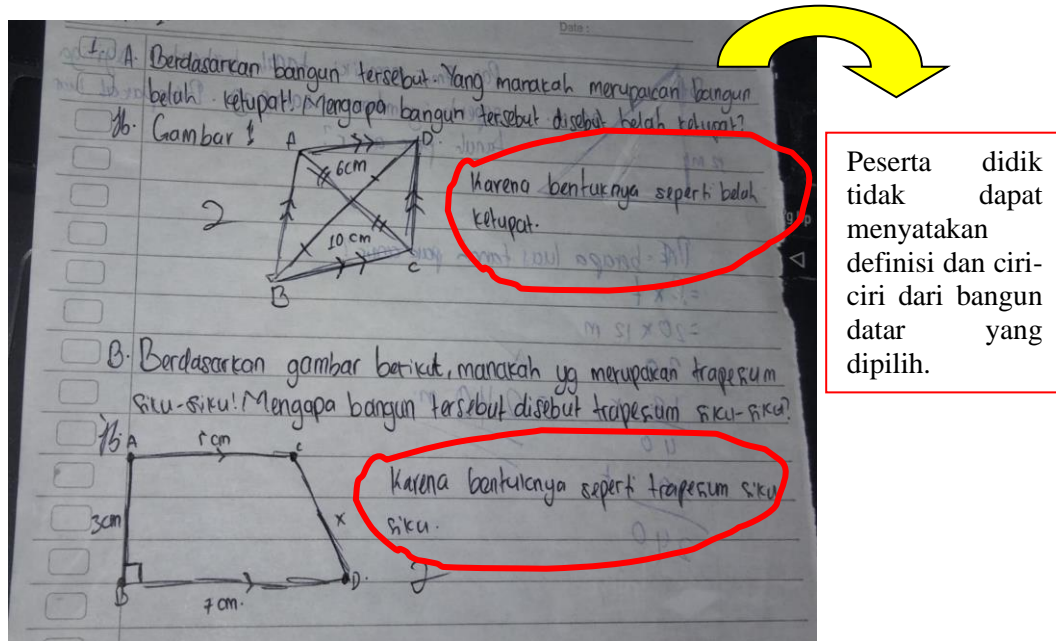 Date:
1. A. Berdasarkan bangun tersebut. Yang manakah merupakan bangun
belah ketupat! Mengapa bangun tersebut disebut belah ketupat?
Jb. Gambar 1
A D.
6cm
Karena bentuknya seperti belah
ketupat.
2
10 cm
B C
B. Berdasarkan gambar berikut, manakah yg merupakan trapesum
siku-siku! Mengapa bangun tersebut disebut trapesum siku-siku?
Jb
A cm C
Karena bentuknya seperti trapesum siku
siku.
3cm x
B D. 2
7 cm.
Peserta didik
tidak dapat
menyatakan
definisi dan ciri-
ciri dari bangun
datar yang
dipilih.